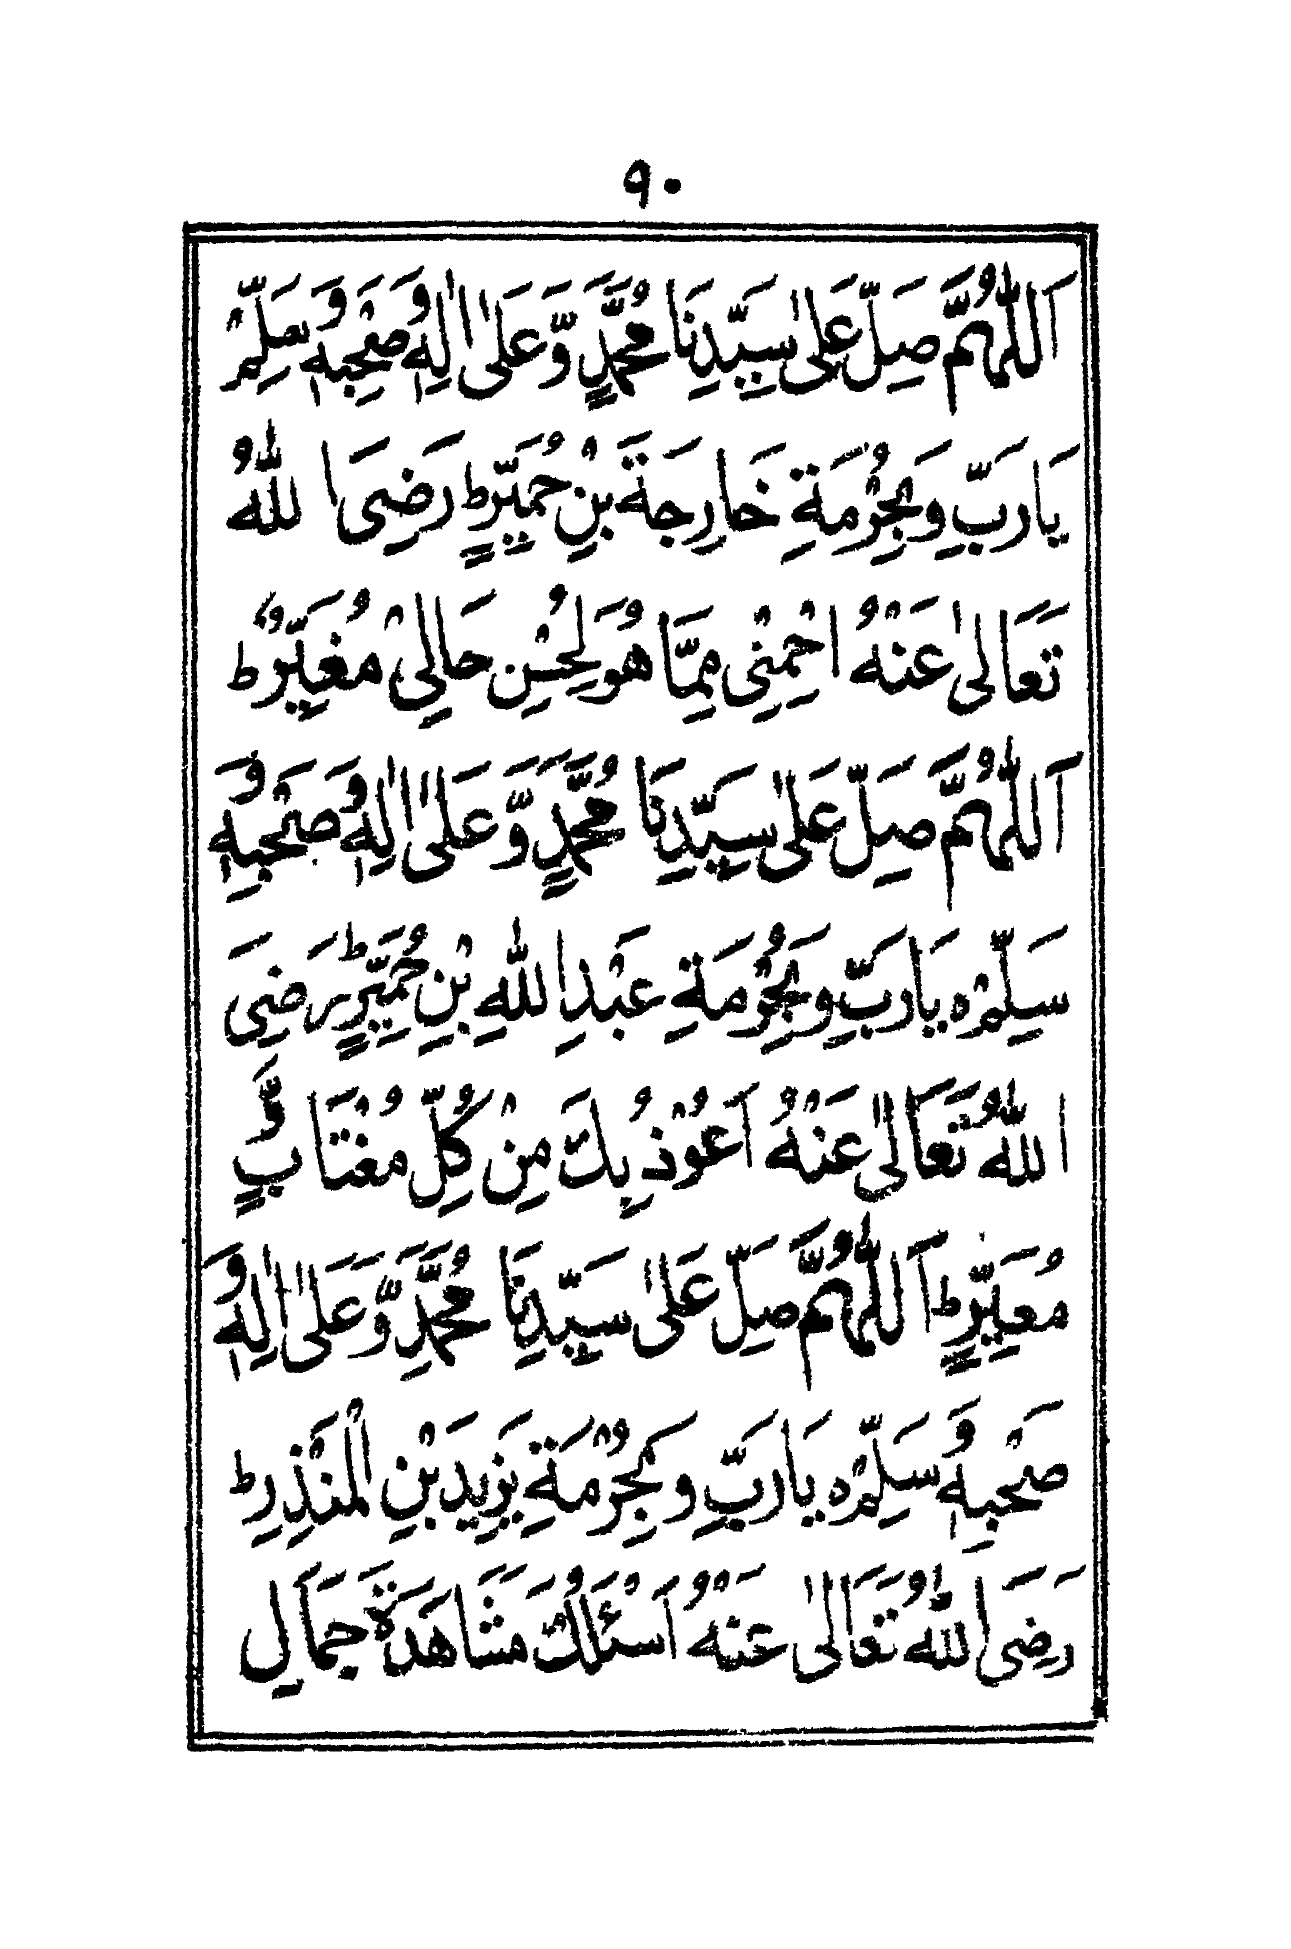 ٩٠
اَللّٰهُمَّ صَلِّ عَلٰى سَيِّدِنَا مُحَمَّدٍ وَّعَلٰى اٰلِهٖ وَصَحْبِهٖ وَسَلِّمْ
يَارَبِّ وَبِحُرْمَةِ خَارِجَةَ بْنِ حُمَيِّرٍ ط رَضِىَ اللّٰهُ
تَعَالٰى عَنْهُ احْمِنِىْ مِمَّا هُوَ لِحُسْنِ حَالِىْ مُغَيِّرٌ ط
اَللّٰهُمَّ صَلِّ عَلٰى سَيِّدِنَا مُحَمَّدٍ وَّعَلٰى اٰلِهٖ وَصَحْبِهٖ وَ
سَلِّمْ ه يَارَبِّ وَبِحُرْمَةِ عَبْدِ اللّٰهِ بْنِ حُمَيِّرٍ ط رَضِىَ
اللّٰهُ تَعَالٰى عَنْهُ اَعُوْذُ بِكَ مِنْ كُلِّ مُغْتَابٍ وَّ
مُعَيِّرٍ ط اَللّٰهُمَّ صَلِّ عَلٰى سَيِّدِنَا مُحَمَّدٍ وَّعَلٰى اٰلِهٖ وَ
صَحْبِهٖ وَسَلِّمْ ه يَارَبِّ وَبِحُرْمَةِ يَزِيدَ بْنِ الْمُنْذِرِ ط
رَضِىَ اللّٰهُ تَعَالٰى عَنْهُ اَسْئَلُكَ مُشَاهَدَةَ جَمَالِ